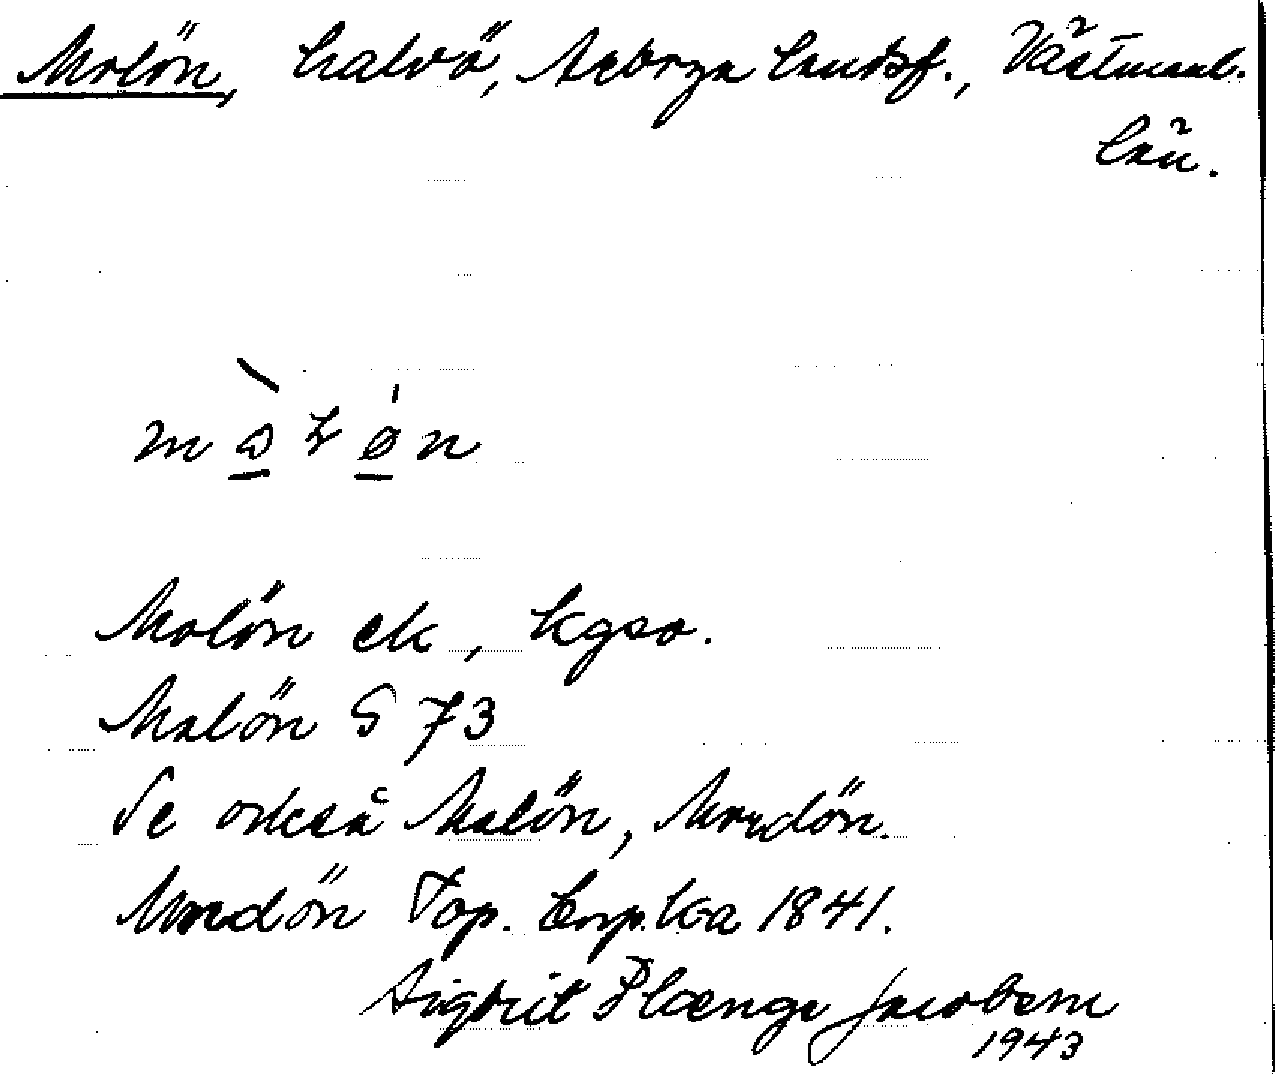 Molön, halvö, Arboga landsf., Västmanl.
län.
Molön ek, kgso.
Malön S 73
Se också Malön, Mordön.
Mordön Top. Corp. ka 1841.
Sigbrit Plænge Jacobson
1943